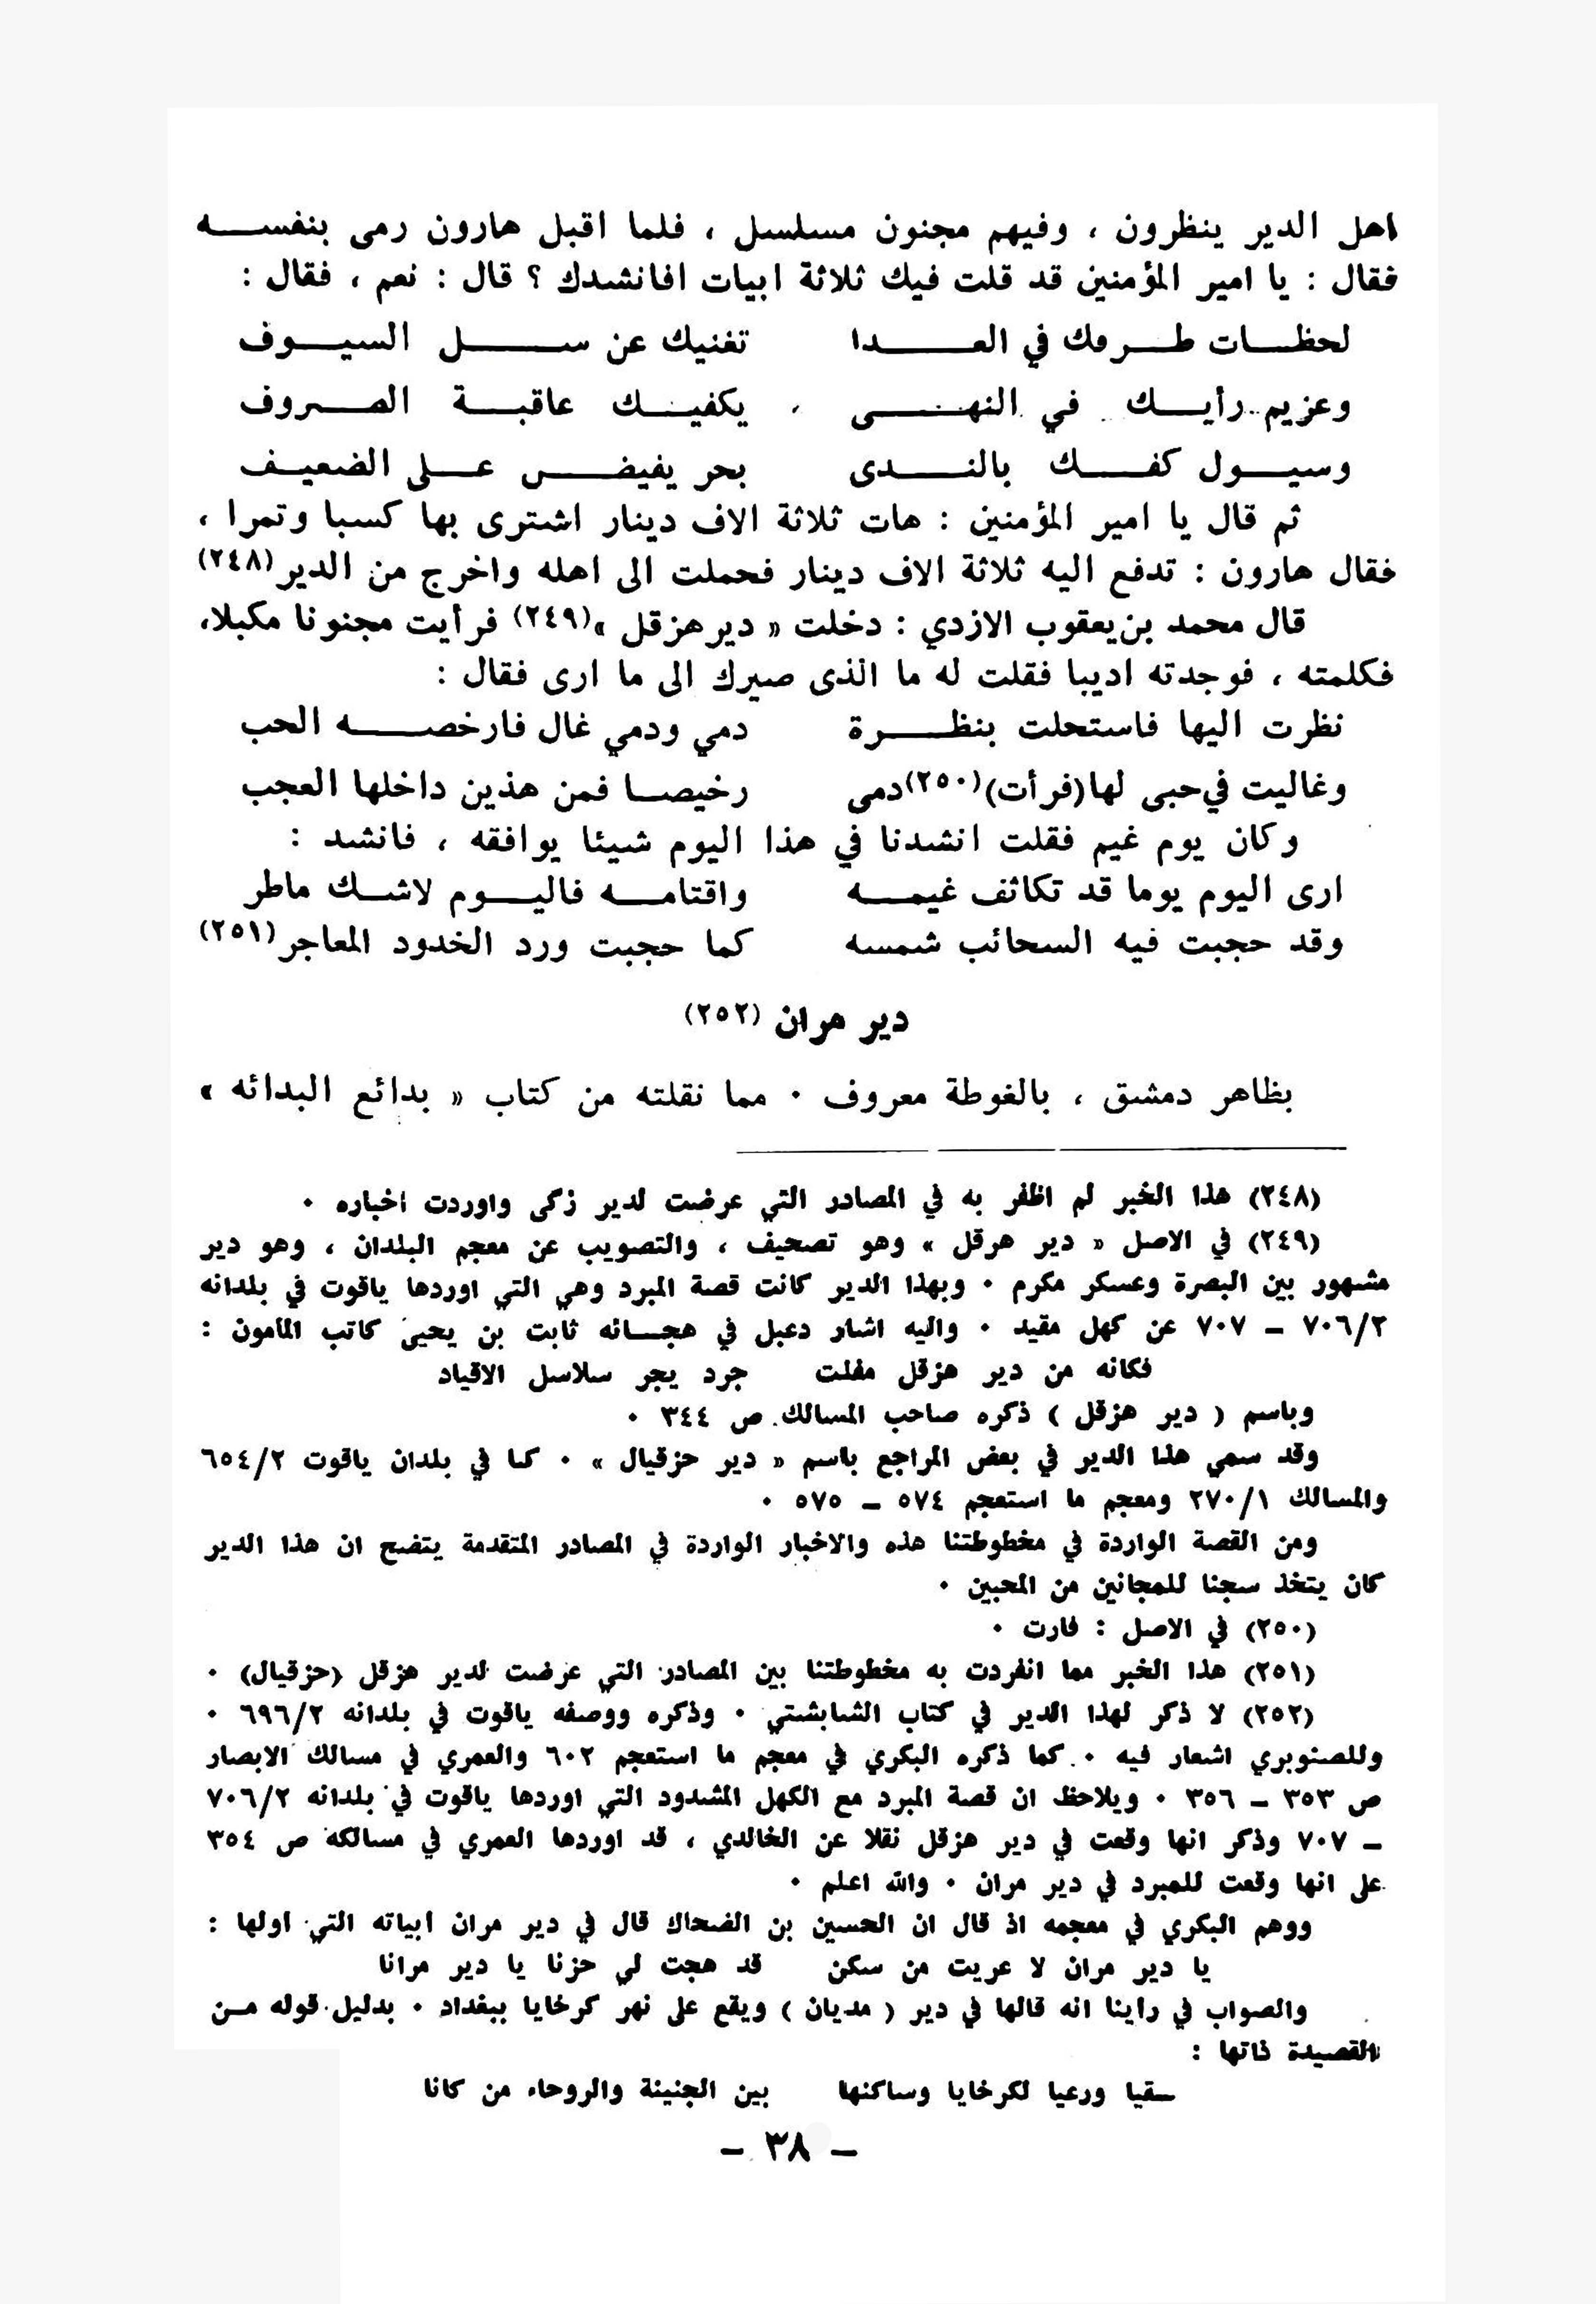 اهل الدير ينظرون ، وفيهم مجنون مسلسل ، فلما اقبل هارون رمى بنفسه
فقال : يا امير المؤمنين قد قلت فيك ثلاثة ابيات افانشدك ؟ قال : نعم ، فقال :
لحظات طرفك في العدا تغنيك عن سل السيوف
وعزيم رأيك في النهى يكفيك عاقبة الصروف
وسيول كفك بالندى بحر يفيض على الضعيف
ثم قال يا امير المؤمنين : هات ثلاثة الاف دينار اشترى بها كسبا وتمرا ،
فقال هارون : تدفع اليه ثلاثة الاف دينار فحملت الى اهله واخرج من الدير (٢٤٨)
قال محمد بن يعقوب الازدي : دخلت « دير هزقل » (٢٤٩) فرأيت مجنونا مكبلا،
فكلمته ، فوجدته اديبا فقلت له ما الذى صيرك الى ما ارى فقال :
نظرت اليها فاستحلت بنظرة دمي ودمي غال فارخصه الحب
وغاليت في حبى لها (فرأت) (٢٥٠) دمى رخيصا فمن هذين داخلها العجب
وكان يوم غيم فقلت انشدنا في هذا اليوم شيئا يوافقه ، فانشد :
ارى اليوم يوما قد تكاثف غيمه واقتامه فاليوم لاشك ماطر
وقد حجبت فيه السحائب شمسه كما حجبت ورد الخدود المعاجر (٢٥١)
دير مران (٢٥٢)
بظاهر دمشق ، بالغوطة معروف . مما نقلته من كتاب « بدائع البدائه »
(٢٤٨) هذا الخبر لم اظفر به في المصادر التي عرضت لدير زكى واوردت اخباره .
(٢٤٩) في الاصل « دير هرقل » وهو تصحيف ، والتصويب عن معجم البلدان ، وهو دير
مشهور بين البصرة وعسكر مكرم . وبهذا الدير كانت قصة المبرد وهي التي اوردها ياقوت في بلدانه
٧٠٦/٢ – ٧٠٧ عن كهل مقيد . واليه اشار دعبل في هجائه ثابت بن يحيى كاتب المأمون :
فكانه من دير هزقل مفلت جرد يجر سلاسل الاقياد
وباسم ( دير هزقل ) ذكره صاحب المسالك ص ٣٤٤ .
وقد سمي هذا الدير في بعض المراجع باسم « دير حزقيال » . كما في بلدان ياقوت ٦٥٤/٢
والمسالك ٢٧٠/١ ومعجم ما استعجم ٥٧٤ – ٥٧٥ .
ومن القصة الواردة في مخطوطتنا هذه والاخبار الواردة في المصادر المتقدمة يتضح ان هذا الدير
كان يتخذ سجنا للمجانين من المحبين .
(٢٥٠) في الاصل : فارت .
(٢٥١) هذا الخبر مما انفردت به مخطوطتنا بين المصادر التي عرضت لدير هزقل (حزقيال) .
(٢٥٢) لا ذكر لهذا الدير في كتاب الشابشتي . وذكره ووصفه ياقوت في بلدانه ٦٩٦/٢ .
وللصنوبري اشعار فيه . كما ذكره البكري في معجم ما استعجم ٦٠٢ والعمري في مسالك الابصار
ص ٣٥٣ – ٣٥٦ . ويلاحظ ان قصة المبرد مع الكهل المشدود التي اوردها ياقوت في بلدانه ٧٠٦/٢
– ٧٠٧ وذكر انها وقعت في دير هزقل نقلا عن الخالدي ، قد اوردها العمري في مسالكه ص ٣٥٤
على انها وقعت للمبرد في دير مران . والله اعلم .
ووهم البكري في معجمه اذ قال ان الحسين بن الضحاك قال في دير مران ابياته التي اولها :
يا دير مران لا عريت من سكن قد هجت لي حزنا يا دير مرانا
والصواب في راينا انه قالها في دير ( مديان ) ويقع على نهر كرخايا ببغداد . بدليل قوله من
القصيدة ذاتها :
سقيا ورعيا لكرخايا وساكنها بين الجنينة والروحاء من كانا
– ٣٨ –